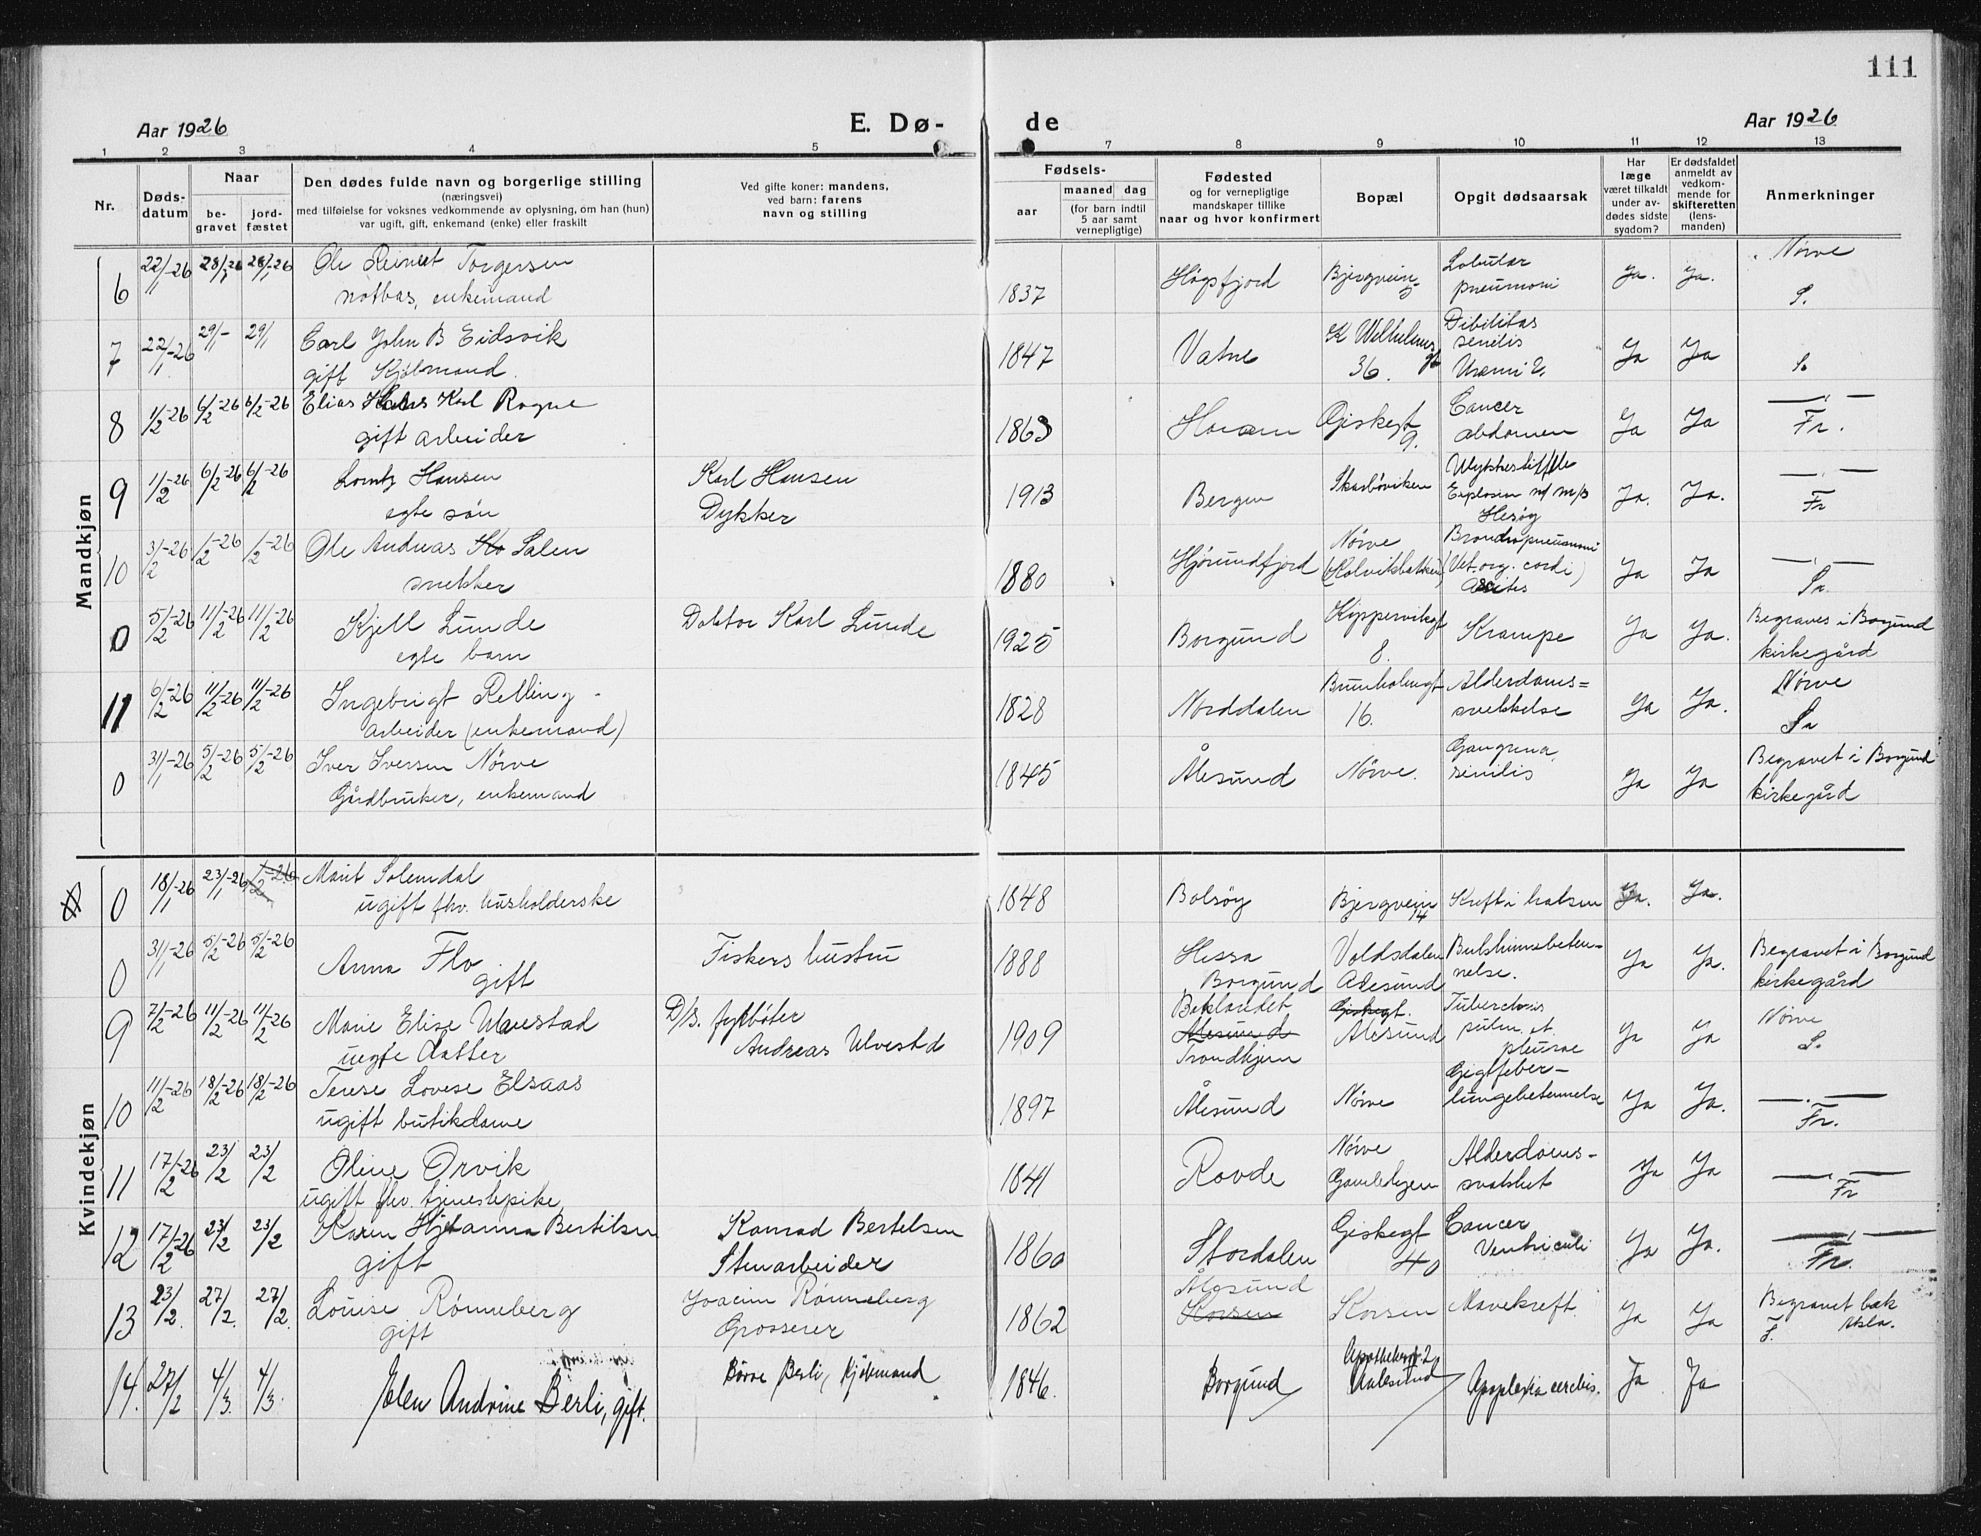 111
Aar 1926
E. Dø-
de
Aar 1926
1 2 3 4 5 7 8 9 10 11 12 13
Nr.
Døds-
datum
Naar
be-
gravet
jord-
fæstet
Den dødes fulde navn og borgerlige stilling
(næringsvei)
med tilføielse for voksnes vedkommende av oplysning, om han (hun)
var ugift, gift, enkemand (enke) eller fraskilt
Ved gifte koner: mandens,
ved barn: farens
navn og stilling
Fødsels-
aar
maaned dag
(for barn indtil
5 aar samt
vernepligtige)
Fødested
og for vernepligtige
mandskaper tillike
naar og hvor konfirmert
Bopæl
Opgit dødsaarsak
Har
læge
været tilkaldt
under av-
dødes sidste
sygdom?
Er dødsfaldet
anmeldt av
vedkom-
mende for
skifteretten
(lens-
manden)
Anmerkninger
Mandkjøn
6 22/1-26 28/1-26 28/1-26 Ole Reinert Torgersen
notbas, enkemand
1837 Høgsfjord Bjergvein 5 Lobulær
pneumoni Ja. Ja. Nørve
S.
7 22/1-26 29/1- 29/1 Carl John B Eidsvik
gift Kjølmand.
1847 Vatne K Wilhelmsgt
36. Dibilitas
senilis
Uræmi Ja Ja S.
8 1/2-26 6/2-26 6/2-26 Elias Karl Rogne
gift arbeider
1863 Haram Giskegt
9. Cancer
abdomen Ja Ja — " —
Fr.
9 1/2-26 6/2-26 6/2-26 Lorntz Hansen
egte søn
Karl Hansen
Dykker
1913 Bergen Skarbøviken Ulykkestilfelle
Explosion m/ m/s
Hesøy Ja. Ja. — " —
Fr
10 3/2-26 1/2-26 1/2-26 Ole Andreas Salen
snekker
1880 Hjørundfjord Nørve
(Kolvikbakken) Bronchopneumoni
(Vet. org. cordi)
Ascites Ja Ja — " —
Sa.
0 5/2-26 11/2-26 11/2-26 Kjell Lunde
egte barn
Doktor Karl Lunde
1925 Borgund Kippervikgt
8. Krampe Ja Ja. Begraves i Borgund
kirkegård
11 6/2-26 11/2-26 11/2-26 Ingebrigt Relling
arbeider (enkemand)
1828 Norddalen Brunholmgt
16. Alderdoms=
svekkelse Ja Ja. Nørve
Sa
0 31/1-26 5/2-26 5/2-26 Iver Iversen Nørve
Gårdbruker, enkemand
1845 Ålesund Nørve. Gangrena
senilis Ja Ja Begravet i Borgund
kirkegård
Kvindekjøn
0 18/1-26 23/1-26 1/2-26 Marit Solemdal
ugift fhv. husholderske
1848 Bolsøy Bjergvein
14 Kreft i halsen Ja. Ja.
0 31/1-26 5/2-26 5/2-26 Anna Flo
gift
Fiskers hustru
1888 Hessa
Borgund Voldsdalen
Ålesund Bukhinnebeten-
nelse. Ja Ja. Begravet i Borgund
kirkegård
9 7/2-26 11/2-26 11/2-26 Marie Elise Ulvestad
uegte datter
D/S. fyrbøter
Andreas Ulvestad
1909 Baklandet
Ålesund
Trondhjem Giskegt.
Alesund Tuberclosis
pulm. et.
pleurae Ja Ja Nørve
S.
10 11/2-26 18/2-26 18/2-26 Terese Lovise Elsaas
ugift butikdame
1897 Ålesund Nørve Gigtfeber-
lungebetennelse Ja Ja. — " —
Fr.
11 17/2-26 23/2 23/2 Oline Ørvik
ugift fhv. tjenestepike
1841 Rovde Nørve
Gamlehjem Alderdoms-
svakhet Ja Ja — " —
Fr
12 17/2-26 23/2 23/2 Karen Bertilsen
gift
Konrad Bertelsen
Stenarbeider
1860 Stordalen Giskegt
40 Cancer
Ventriculi Ja Ja. — " —
Fr.
13 23/2. 27/2. 27/2. Louise Rønneberg
gift
Joacim Rønneberg
Grosserer
1862 Ålesund
Korsen Korsen Mavekreft. Ja Ja Begravet bak
F.
14. 27/2 4/3. 4/3. Jelen Andrine Berli, gift.
Børre Berli, Kjølmand
1846. Borgund Apothekergt. 2
Aalesund Apoplexia cerebis. Ja Ja